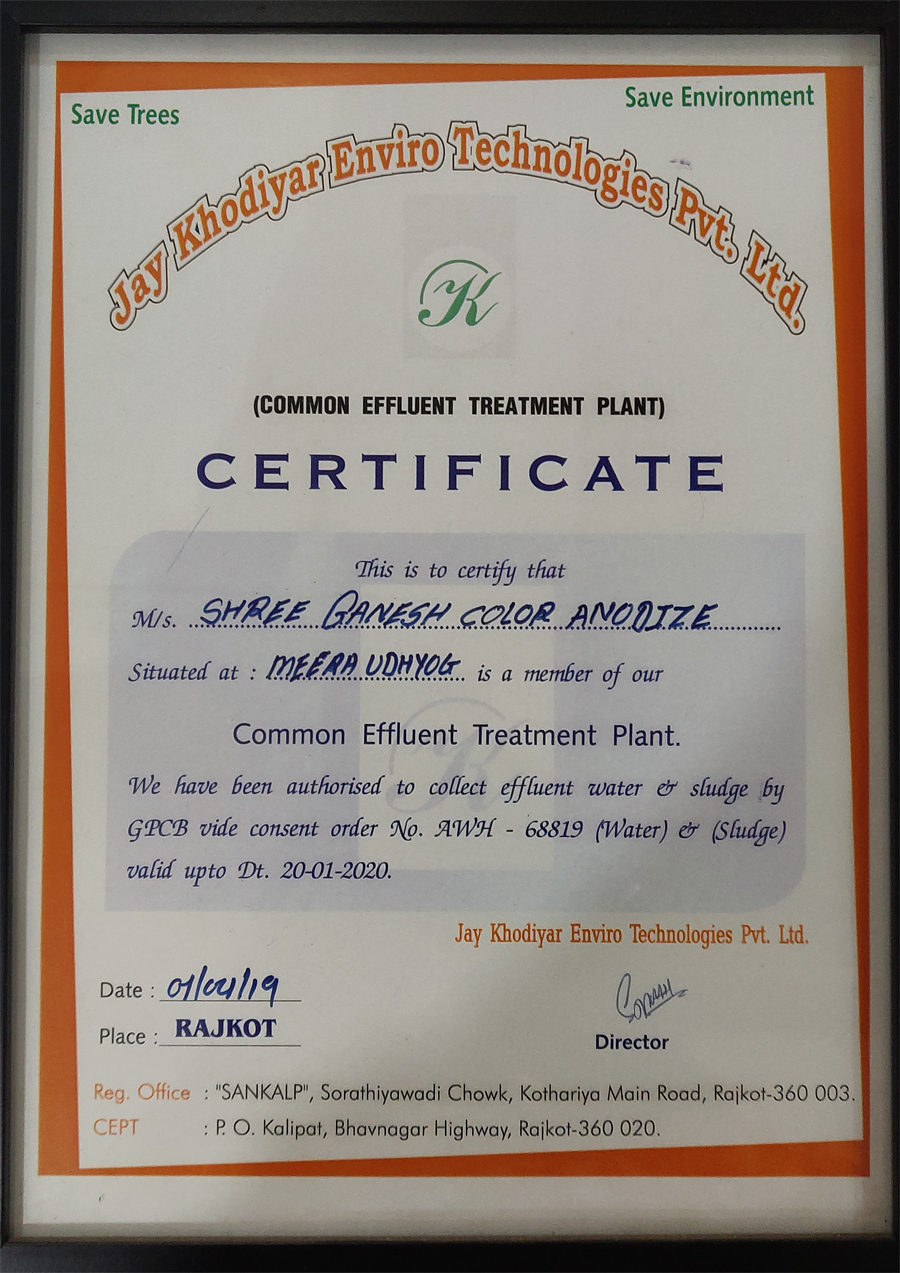 Save Trees
Save Environment
Jay Khodiyar Enviro Technologies Pvt. Ltd.
K
(COMMON EFFLUENT TREATMENT PLANT)
CERTIFICATE
This is to certify that
M/s. SHREE GANESH COLOR ANODIZE
Situated at : MEERA UDHYOG is a member of our
Common Effluent Treatment Plant.
We have been authorised to collect effluent water & sludge by
GPCB vide consent order No. AWH - 68819 (Water) & (Sludge)
valid upto Dt. 20-01-2020.
Jay Khodiyar Enviro Technologies Pvt. Ltd.
Date : 01/04/19
Place : RAJKOT
Director
Reg. Office : "SANKALP", Sorathiyawadi Chowk, Kothariya Main Road, Rajkot-360 003.
CEPT : P. O. Kalipat, Bhavnagar Highway, Rajkot-360 020.